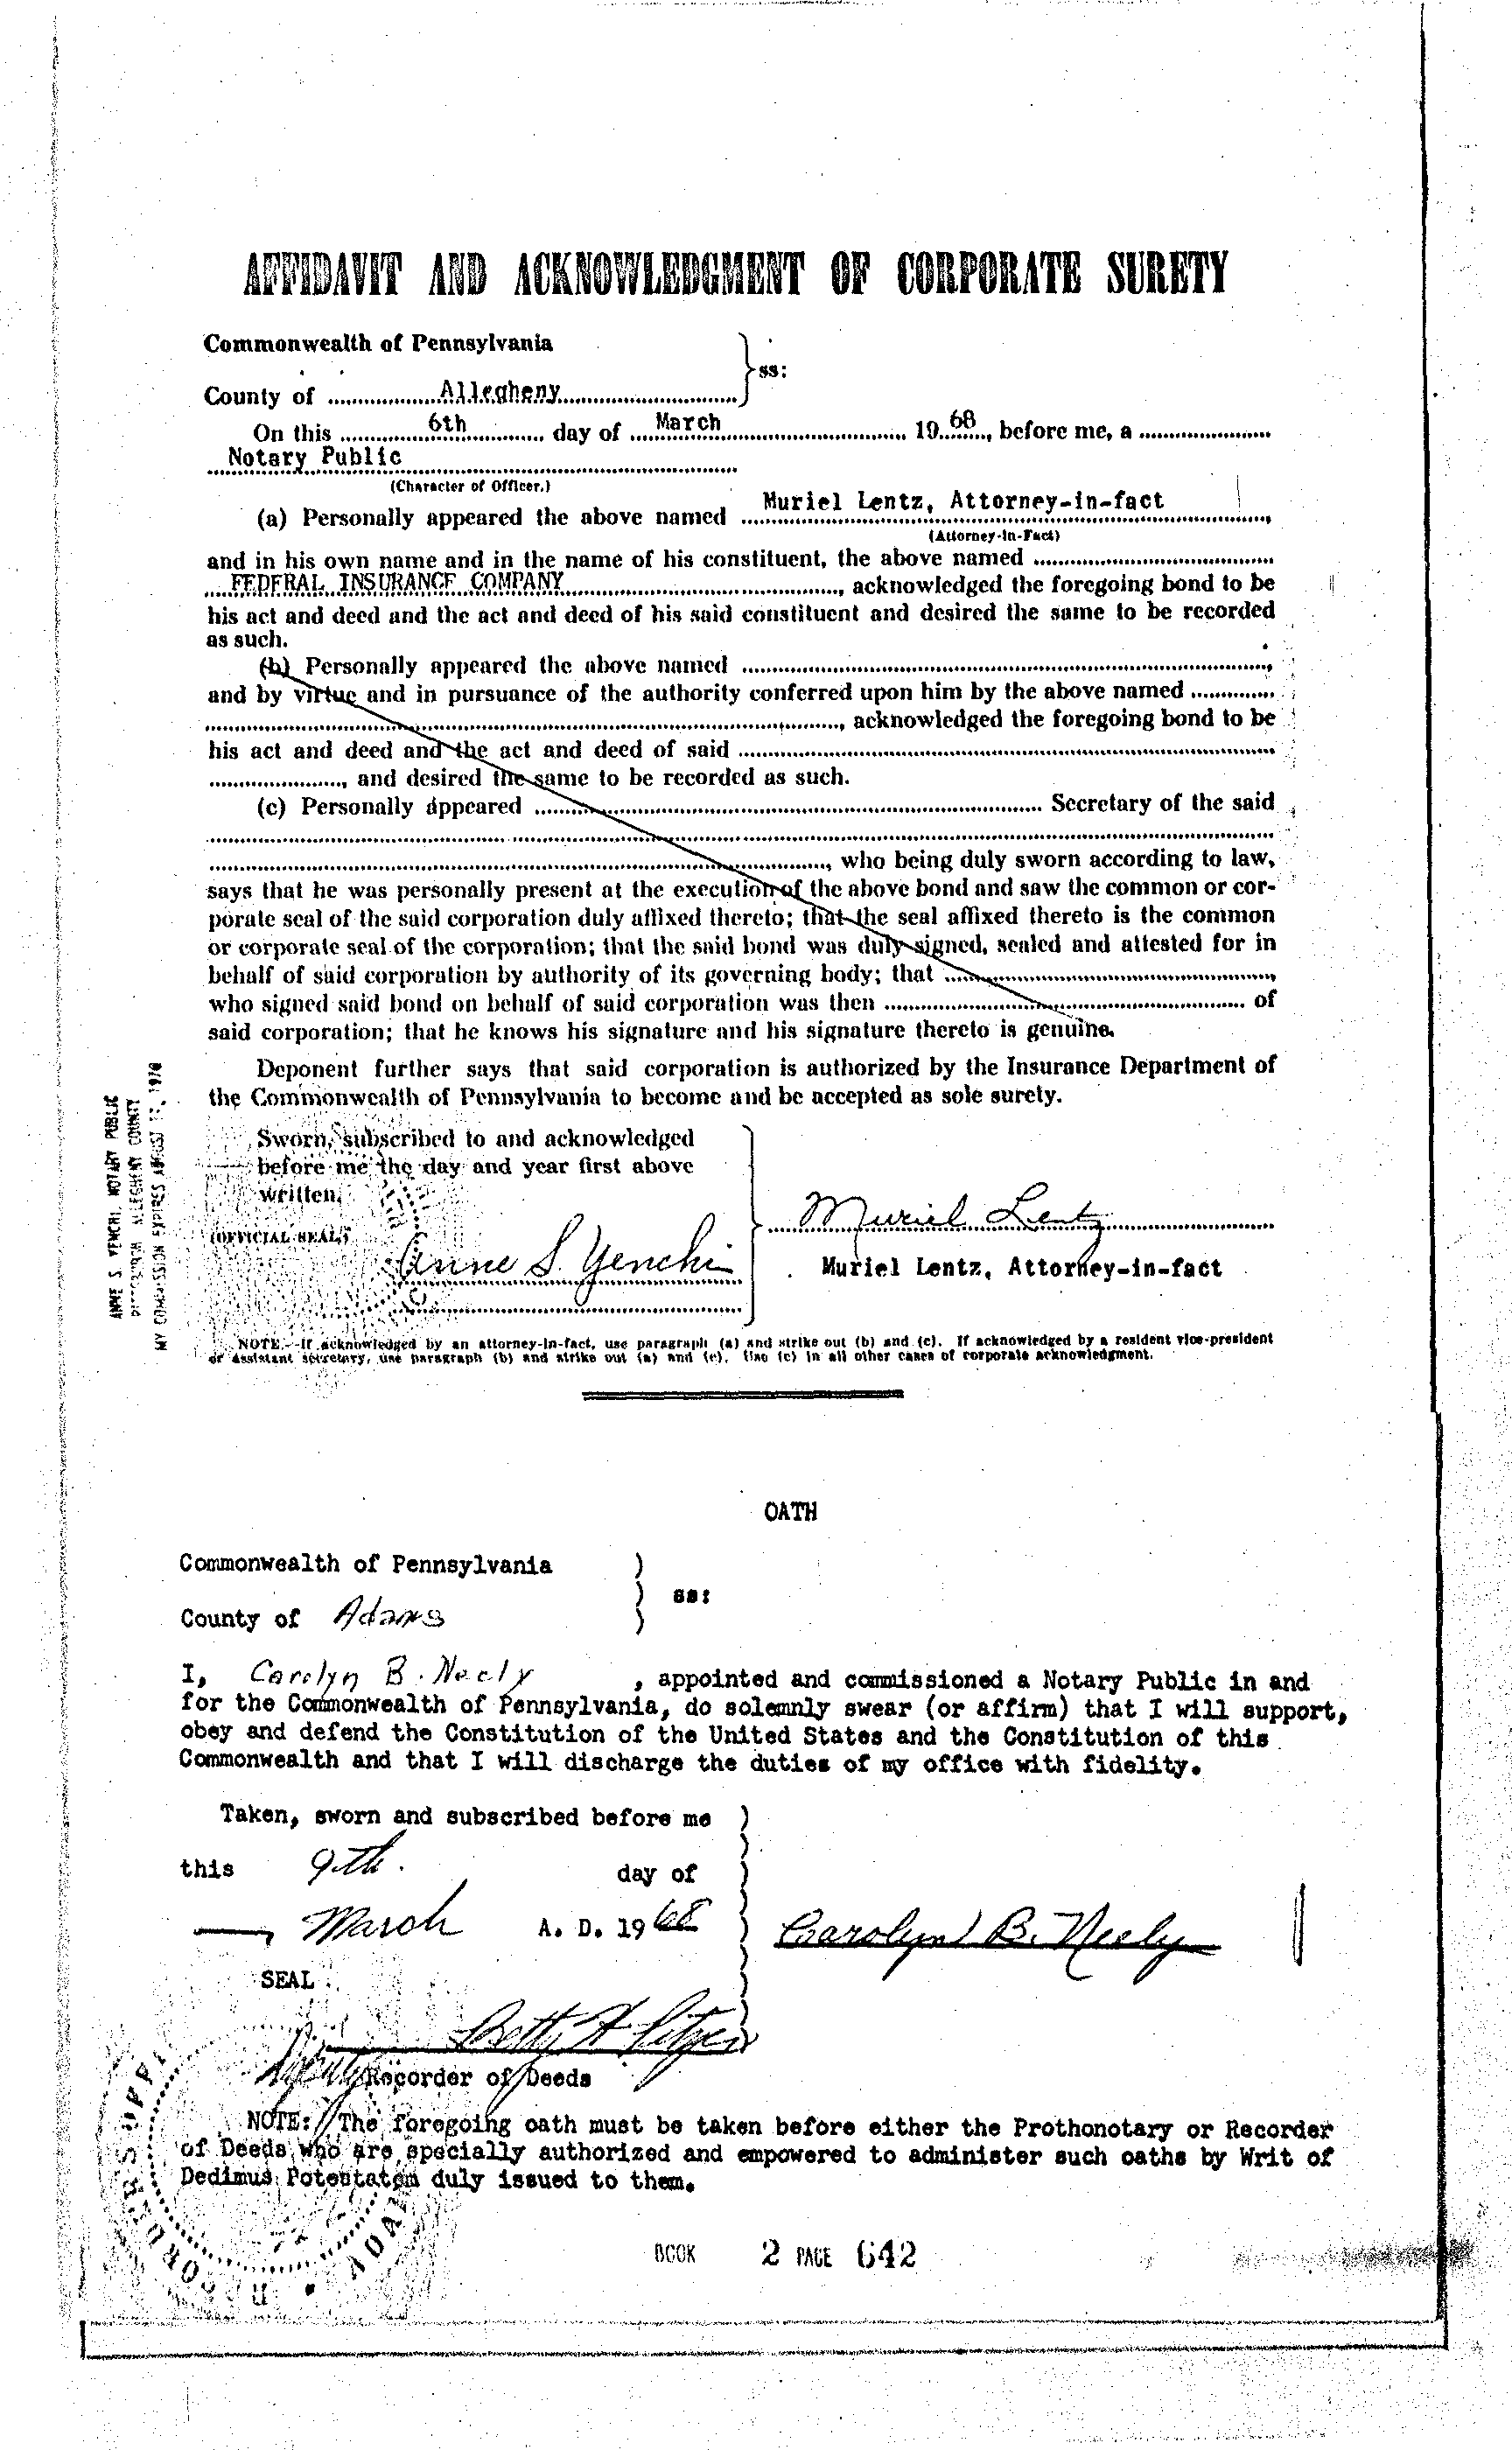 AFFIDAVIT AND ACKNOWLEDGMENT OF CORPORATE SURETY
Commonwealth of Pennsylvania
ss:
County of Allegheny
On this 6th day of March 1968, before me, a
Notary Public
(Character of Officer.)
(a) Personally appeared the above named Muriel Lentz, Attorney-in-fact
(Attorney-in-Fact)
and in his own name and in the name of his constituent, the above named
FEDERAL INSURANCE COMPANY, acknowledged the foregoing bond to be
his act and deed and the act and deed of his said constituent and desired the same to be recorded
as such.
(b) Personally appeared the above named ,
and by virtue and in pursuance of the authority conferred upon him by the above named
, acknowledged the foregoing bond to be
his act and deed and the act and deed of said
, and desired the same to be recorded as such.
(c) Personally appeared Secretary of the said
, who being duly sworn according to law,
says that he was personally present at the execution of the above bond and saw the common or cor-
porate seal of the said corporation duly affixed thereto; that the seal affixed thereto is the common
or corporate seal of the corporation; that the said bond was duly signed, sealed and attested for in
behalf of said corporation by authority of its governing body; that ,
who signed said bond on behalf of said corporation was then of
said corporation; that he knows his signature and his signature thereto is genuine.
Deponent further says that said corporation is authorized by the Insurance Department of
the Commonwealth of Pennsylvania to become and be accepted as sole surety.
ANNE S. YENCHI, NOTARY PUBLIC
ALLEGHENY COUNTY
MY COMMISSION EXPIRES AUGUST 1970
Sworn, subscribed to and acknowledged
before me the day and year first above
written.
(OFFICIAL SEAL)
Anne S. Yenchi
Muriel Lentz
Muriel Lentz, Attorney-in-fact
NOTE.—If acknowledged by an attorney-in-fact, use paragraph (a) and strike out (b) and (c). If acknowledged by a resident vice-president
or assistant secretary, use paragraph (b) and strike out (a) and (c). Use (c) in all other cases of corporate acknowledgment.
OATH
Commonwealth of Pennsylvania )
) ss:
County of Adams )
I, Carolyn B. Neely , appointed and commissioned a Notary Public in and
for the Commonwealth of Pennsylvania, do solemnly swear (or affirm) that I will support,
obey and defend the Constitution of the United States and the Constitution of this
Commonwealth and that I will discharge the duties of my office with fidelity.
Taken, sworn and subscribed before me
this 9th. day of
March A. D. 1968
Carolyn B. Neely
SEAL
Betty H
Deputy Recorder of Deeds
NOTE: The foregoing oath must be taken before either the Prothonotary or Recorder
of Deeds who are specially authorized and empowered to administer such oaths by Writ of
Dedimus Potestatem duly issued to them.
BOOK 2 PAGE 642